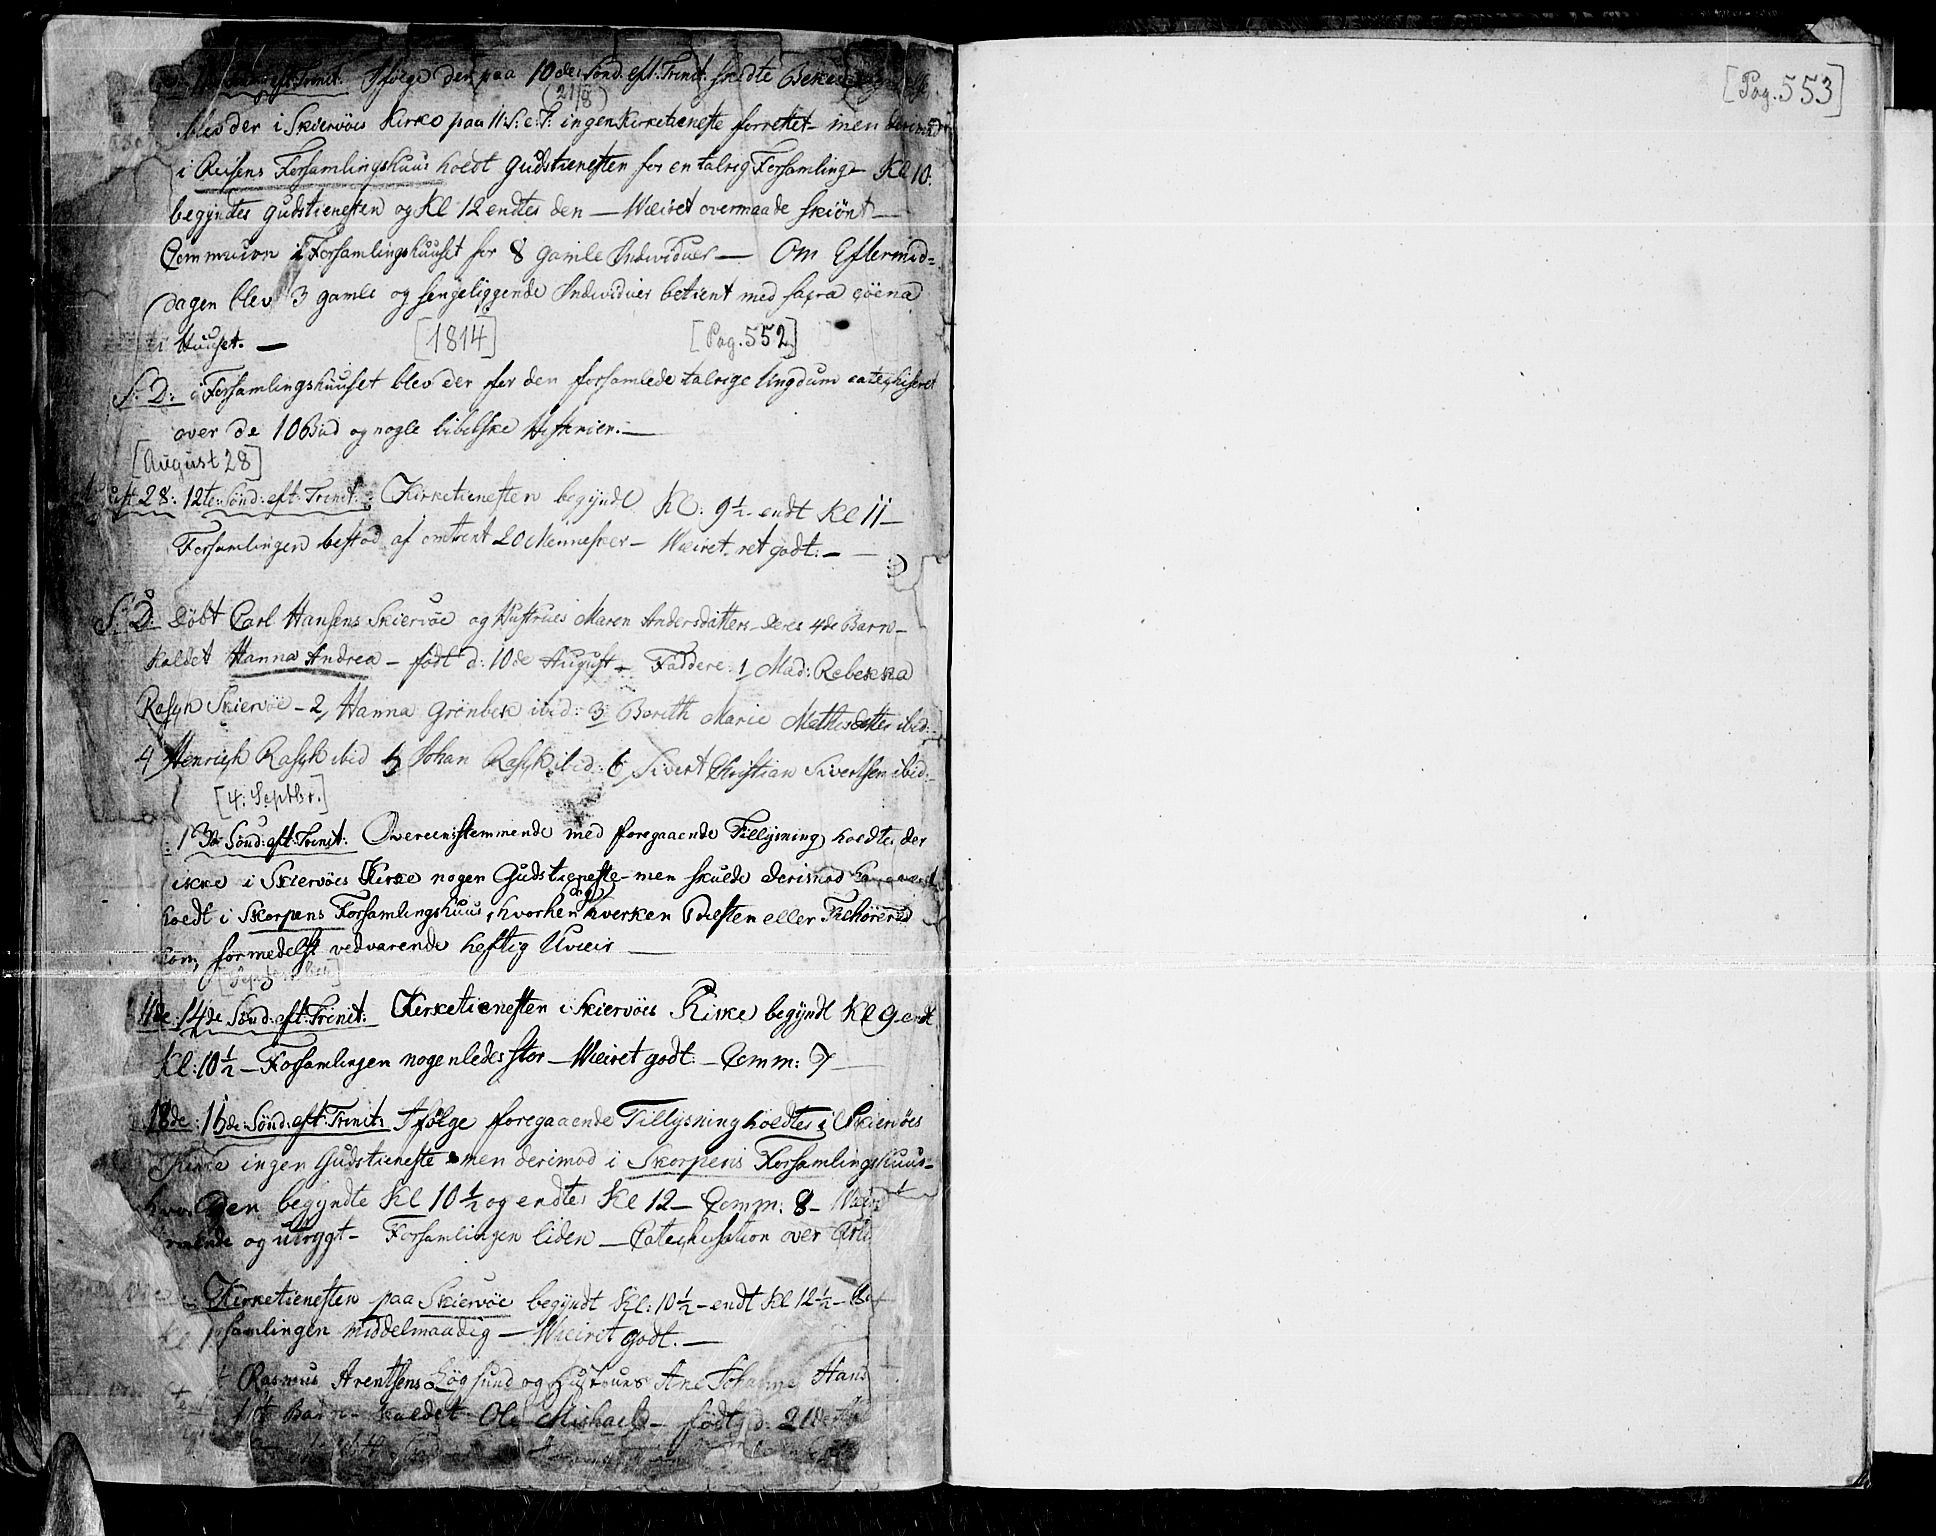 eft: Trinit: Ifølge den paa 10de Sønd. eft: Trinit: skedte
(21/8)
blev der i Skiervöes Kirke paa 11: S: e: T: ingen Kirketieneste forrettet – men derimod
i Reisens Forsamlingshuus holdt Gudstienesten for en talrig Forsamling – Kl 10.
begyndtes Gudstienesten og Kl 12 endtes den – Weiret overmaade skiönt –
Communion i Forsamlingshuuset for 8 gamle Individuer – Om Eftermid=
dagen blev 3 gamle og sengeliggende Individuer betient med sacra cöena
i Huuset. –
[1814] [Pag. 552]
S: D: i Forsamlingshuuset blev der for den forsamlede talrige Ungdum catechiseret
over de 10 Bud og nogle bibelske Historier. –
[August 28]
28: 12te Sönd: eft: Trinit: Kirketienesten begyndt Kl: 9½ – endt Kl 11 –
Forsamlingen bestod af omtrent 20 Mennesker – Weiret ret godt: –
S: D: Döbt Carl Hansens Skiervöe og Hustrues Maren Andersdatters – deres 4de Barn –
kaldet Hanna Andrea – födt d: 10de August – Faddere: 1, Mad: Rebekka
Rasch Skiervöe – 2, Hanna Grönbek ibid: 3, Bereth Marie Mathisdatter ibid:
4, Henrich Rasch ibid 5, Johan Rasch ibid: 6, Sivert Christian Sivertsen ibid: –
[4: Septbr.]
13de Sönd: eft: Trinit: Overeensstemmende med foregaaende Tillysning holdtes der
ikke i Skiervöes Kirke nogen Gudstieneste – men skulde derimod have været
holdt i Skorpens Forsamlingshuus, hvorhen hverken Præsten eller Tilhörerne
kom, formedelst vedvarende heftig Uveir –
[September]
11de: 14de Sönd: eft: Trinit: Kirketienesten i Skiervöes Kirke begyndt Kl 9. endt
Kl: 10½ – Forsamlingen nogenledes stor – Weiret godt: – Comm: 7 –
18de: 15de Sönd: eft: Trinit: Ifølge foregaaende Tillysning holdtes i Skiervöes
Kirke ingen Gudstieneste – men derimod i Skorpens Forsamlingshuus –
hvor den begyndte Kl 10½ og endtes Kl 12 – Comm: 8 –
og utrygt – Forsamlingen liden – Catechisation over
Kirketienesten paa Skiervöe begyndt Kl: 10½ – endt Kl 12½ –
samlingen middelmaadig – Weiret godt. –
Rasmus Arentsens Lögsund og Hustrues Ane Johanne Hans
Barn – kaldet Ole Michael – födt d: 21de
[Pag. 553]